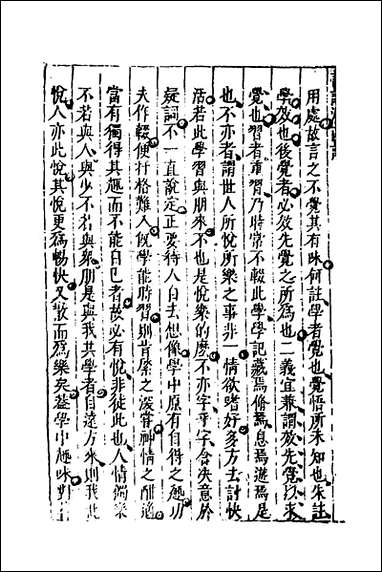 用處故言之不覺其有味何註學者覺也覺悟所未知也朱註
學效也後覺者必效先覺之所為也二義宜兼謂效先覺以求
覺也習者重習乃時常不輟此學學記藏焉脩焉息焉遊焉是
也不亦者謂世人所悅所樂之事非一情欲嗜好多方去計快
活若此學習與朋來不也是悅樂的麼不亦字乎字含決意於
疑詞不一直說定正要待人自去想像學中原有自得之趣功
夫作輟便扞格難入旣學能時習則旨條之浸膏神情之酣適
當有獨得其趣而不能自已者故必有悅非徒此也人情獨樂
不若與人與少不若與衆朋是與我共學者自遠方來則我此
悅人亦此悅其悅更為暢快又散而為樂矣蓋學中趣味對